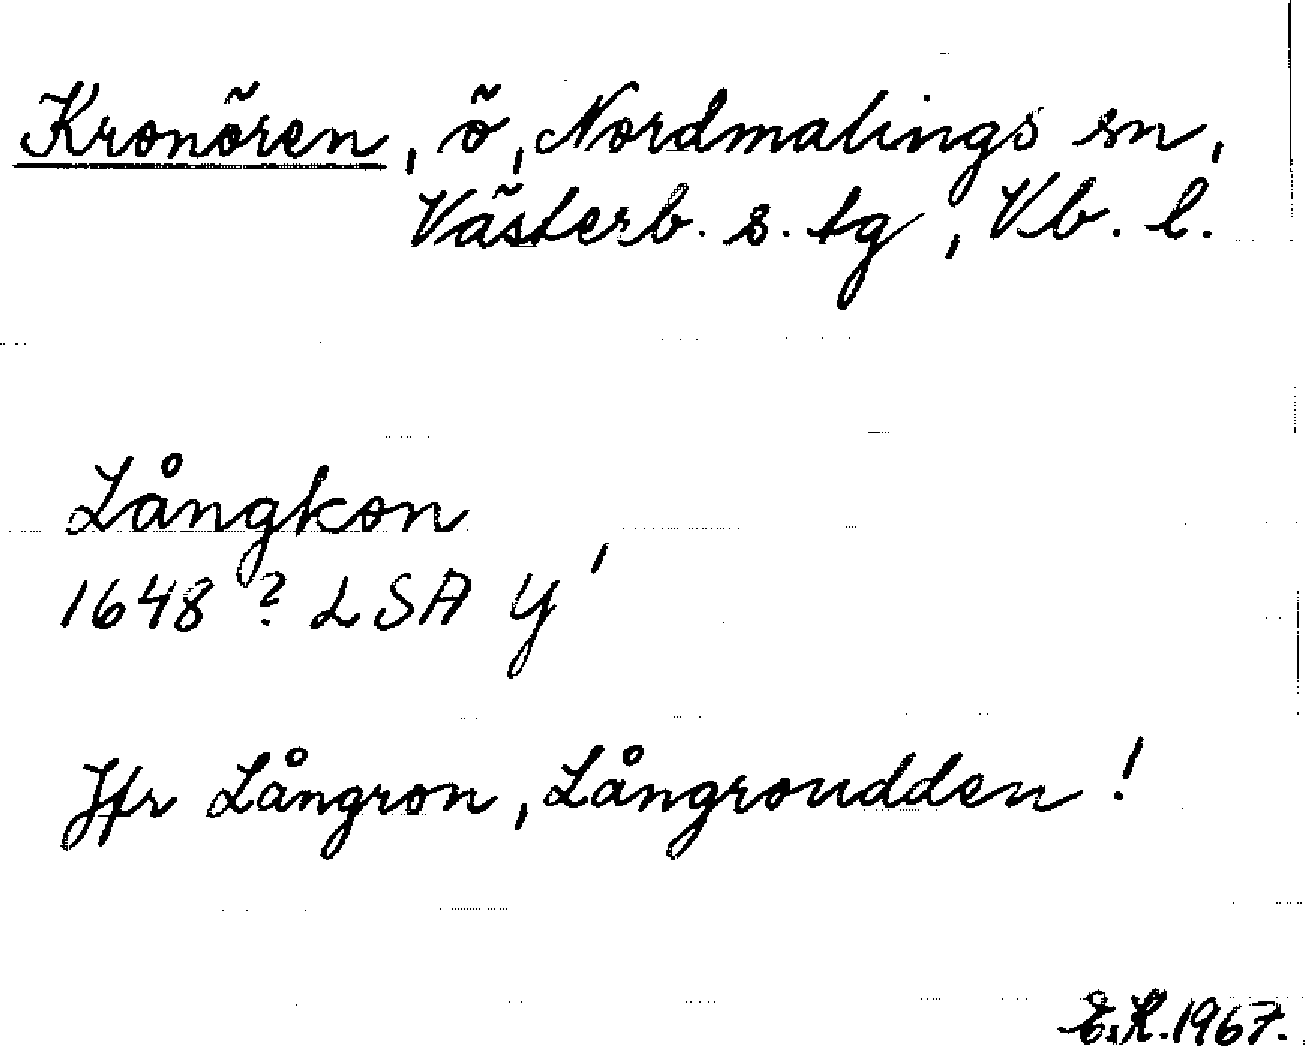 Kronören, ö, Nordmalings sn,
Västerb. s. tg, Vb. l.
Långkon
1648? LSA Y'
Jfr Långron, Långroudden!
E.K. 1967.